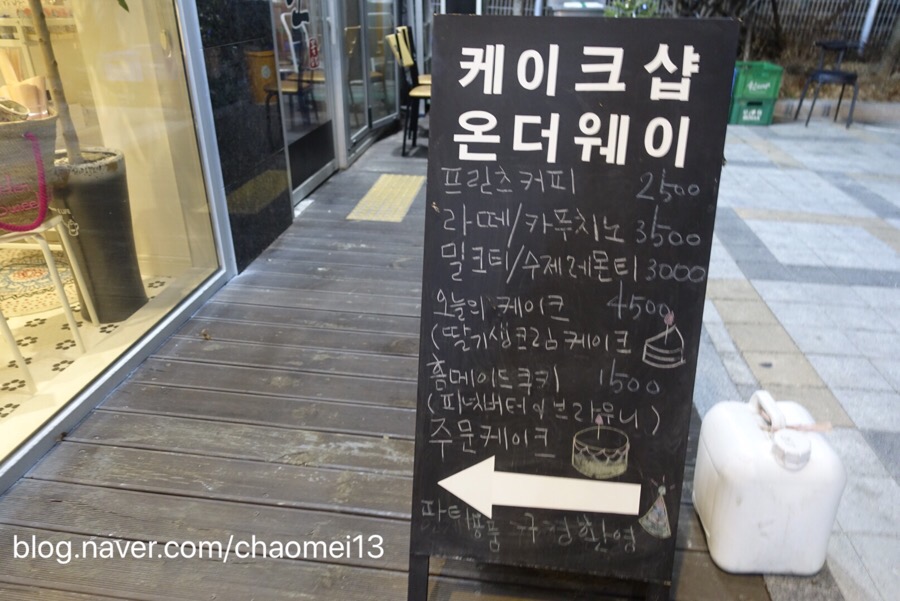 케이크샵
온더웨이
프린츠커피 2500
라떼/카푸치노 3500
밀크티/수제레몬티 3000
오늘의 케이크 4500
(딸기생크림케이크
홈메이드쿠키 1500
(피넛버터 브라우니)
주문케이크
파티용품 구경환영
blog.naver.com/chaomei13